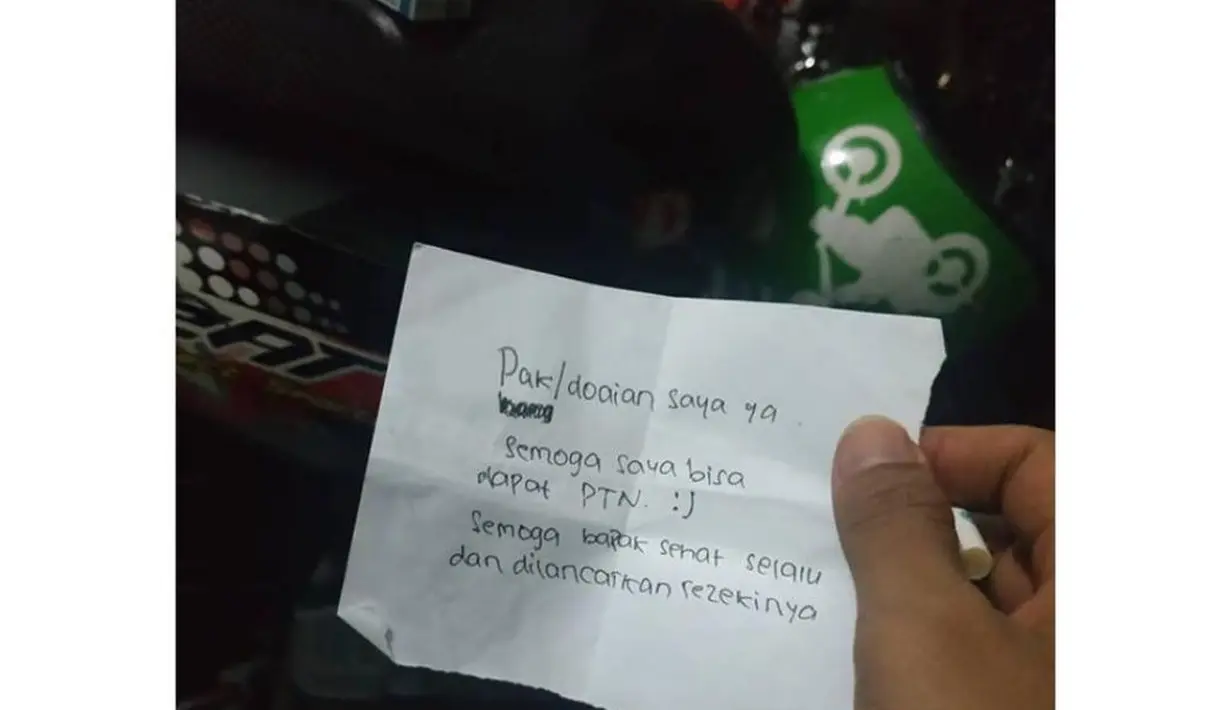 Pak/doaian saya ya.
bang
Semoga saya bisa
dapat PTN. :)
Semoga bapak sehat selalu
dan dilancarkan rezekinya